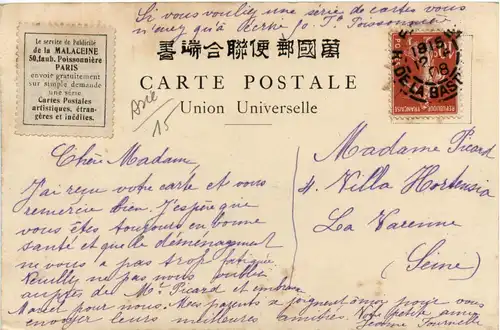 Si vous voulez une série de cartes vous
n'avez qu'à écrire 50 Fg Poissonnière
Le service de Publicité
de la MALACEINE
50, faub. Poissonnière
PARIS
envoie gratuitement
sur simple demande
une série
Cartes Postales
artistiques, étran-
gères et inédites.
書端合聯便郵國萬
CARTE POSTALE
Union Universelle
15
R. DE LA BAST
Chère Madame,
J'ai reçu votre carte et vous
remercie bien. J'espère que
vous êtes toujours en bonne
santé et que le déménagement
ne vous a pas trop fatiguée
Veuillez ne pas nous oublier
auprès de Mr Picard et embrassez
Marcel pour nous. Mes parents se joignent à moi pour vous
envoyer leurs meilleures amitiés. Votre petite amie
Jeanne
Madame Picard
4, Villa Hortensia
La Varenne
(Seine)